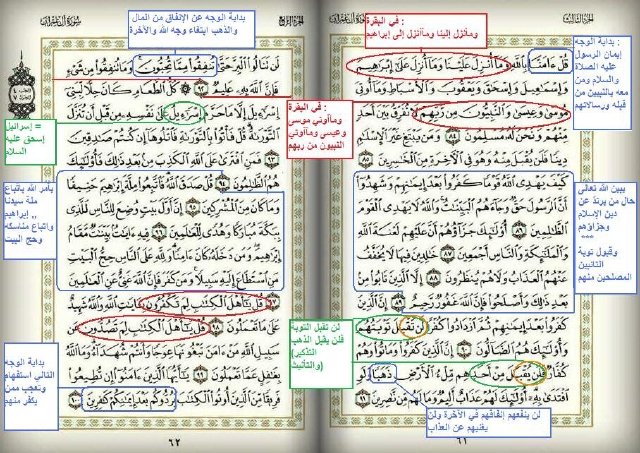 الجزء الثالث
سورة آل عمران
قُلْ ءَامَنَّا بِٱللَّهِ وَمَآ أُنزِلَ عَلَيْنَا وَمَآ أُنزِلَ عَلَىٰٓ إِبْرَٰهِيمَ
وَإِسْمَٰعِيلَ وَإِسْحَٰقَ وَيَعْقُوبَ وَٱلْأَسْبَاطِ وَمَآ أُوتِىَ
مُوسَىٰ وَعِيسَىٰ وَٱلنَّبِيُّونَ مِن رَّبِّهِمْ لَا نُفَرِّقُ بَيْنَ أَحَدٍ
مِّنْهُمْ وَنَحْنُ لَهُۥ مُسْلِمُونَ ٨٤ وَمَن يَبْتَغِ غَيْرَ ٱلْإِسْلَٰمِ
دِينًا فَلَن يُقْبَلَ مِنْهُ وَهُوَ فِى ٱلْءَاخِرَةِ مِنَ ٱلْخَٰسِرِينَ ٨٥
كَيْفَ يَهْدِى ٱللَّهُ قَوْمًا كَفَرُوا۟ بَعْدَ إِيمَٰنِهِمْ وَشَهِدُوٓا۟
أَنَّ ٱلرَّسُولَ حَقٌّ وَجَآءَهُمُ ٱلْبَيِّنَٰتُ وَٱللَّهُ لَا يَهْدِى ٱلْقَوْمَ
ٱلظَّٰلِمِينَ ٨٦ أُو۟لَٰٓئِكَ جَزَآؤُهُمْ أَنَّ عَلَيْهِمْ لَعْنَةَ ٱللَّهِ
وَٱلْمَلَٰٓئِكَةِ وَٱلنَّاسِ أَجْمَعِينَ ٨٧ خَٰلِدِينَ فِيهَا لَا يُخَفَّفُ
عَنْهُمُ ٱلْعَذَابُ وَلَا هُمْ يُنظَرُونَ ٨٨ إِلَّا ٱلَّذِينَ تَابُوا۟ مِنۢ
بَعْدِ ذَٰلِكَ وَأَصْلَحُوا۟ فَإِنَّ ٱللَّهَ غَفُورٌ رَّحِيمٌ ٨٩ إِنَّ ٱلَّذِينَ
كَفَرُوا۟ بَعْدَ إِيمَٰنِهِمْ ثُمَّ ٱزْدَادُوا۟ كُفْرًا لَّن تُقْبَلَ تَوْبَتُهُمْ
وَأُو۟لَٰٓئِكَ هُمُ ٱلضَّآلُّونَ ٩٠ إِنَّ ٱلَّذِينَ كَفَرُوا۟ وَمَاتُوا۟ وَهُمْ
كُفَّارٌ فَلَن يُقْبَلَ مِنْ أَحَدِهِم مِّلْءُ ٱلْأَرْضِ ذَهَبًا وَلَوِ
ٱفْتَدَىٰ بِهِۦٓ أُو۟لَٰٓئِكَ لَهُمْ عَذَابٌ أَلِيمٌ وَمَا لَهُم مِّن نَّٰصِرِينَ ٩١
٦١
بداية الوجه :
إيمان الرسول
عليه الصلاة
والسلام ومن
معه بالنبيين من
قبله ورسالاتهم
يبين الله تعالى
حال من يرتد عن
دين الإسلام
وجزاؤهم
***
وقبول توبة
التائبين
المصلحين منهم
في البقرة :
وماأنزل إلينا وماأنزل إلى إبراهيم
في البقرة :
وماأوتي موسى
وعيسى وماأوتي
النبيون من ربهم
لن تقبل التوبة
فلن يقبل الذهب
(التذكير
والتأنيث)
لن ينفعهم إنفاقهم في الآخرة ولن
يغنيهم عن العذاب
الجزء الرابع
سورة آل عمران
لَن تَنَالُوا۟ ٱلْبِرَّ حَتَّىٰ تُنفِقُوا۟ مِمَّا تُحِبُّونَ وَمَا تُنفِقُوا۟ مِن شَىْءٍ
فَإِنَّ ٱللَّهَ بِهِۦ عَلِيمٌ ٩٢ كُلُّ ٱلطَّعَامِ كَانَ حِلًّا لِّبَنِىٓ
إِسْرَٰٓءِيلَ إِلَّا مَا حَرَّمَ إِسْرَٰٓءِيلُ عَلَىٰ نَفْسِهِۦ مِن قَبْلِ أَن تُنَزَّلَ
ٱلتَّوْرَىٰةُ قُلْ فَأْتُوا۟ بِٱلتَّوْرَىٰةِ فَٱتْلُوهَآ إِن كُنتُمْ صَٰدِقِينَ
٩٣ فَمَنِ ٱفْتَرَىٰ عَلَى ٱللَّهِ ٱلْكَذِبَ مِنۢ بَعْدِ ذَٰلِكَ فَأُو۟لَٰٓئِكَ
هُمُ ٱلظَّٰلِمُونَ ٩٤ قُلْ صَدَقَ ٱللَّهُ فَٱتَّبِعُوا۟ مِلَّةَ إِبْرَٰهِيمَ حَنِيفًا
وَمَا كَانَ مِنَ ٱلْمُشْرِكِينَ ٩٥ إِنَّ أَوَّلَ بَيْتٍ وُضِعَ لِلنَّاسِ لَلَّذِى
بِبَكَّةَ مُبَارَكًا وَهُدًى لِّلْعَٰلَمِينَ ٩٦ فِيهِ ءَايَٰتٌۢ بَيِّنَٰتٌ مَّقَامُ
إِبْرَٰهِيمَ وَمَن دَخَلَهُۥ كَانَ ءَامِنًا وَلِلَّهِ عَلَى ٱلنَّاسِ حِجُّ ٱلْبَيْتِ
مَنِ ٱسْتَطَاعَ إِلَيْهِ سَبِيلًا وَمَن كَفَرَ فَإِنَّ ٱللَّهَ غَنِىٌّ عَنِ ٱلْعَٰلَمِينَ
٩٧ قُلْ يَٰٓأَهْلَ ٱلْكِتَٰبِ لِمَ تَكْفُرُونَ بِـَٔايَٰتِ ٱللَّهِ وَٱللَّهُ شَهِيدٌ
عَلَىٰ مَا تَعْمَلُونَ ٩٨ قُلْ يَٰٓأَهْلَ ٱلْكِتَٰبِ لِمَ تَصُدُّونَ عَن
سَبِيلِ ٱللَّهِ مَنْ ءَامَنَ تَبْغُونَهَا عِوَجًا وَأَنتُمْ شُهَدَآءُ وَمَا ٱللَّهُ
بِغَٰفِلٍ عَمَّا تَعْمَلُونَ ٩٩ يَٰٓأَيُّهَا ٱلَّذِينَ ءَامَنُوٓا۟ إِن تُطِيعُوا۟
فَرِيقًا مِّنَ ٱلَّذِينَ أُوتُوا۟ ٱلْكِتَٰبَ يَرُدُّوكُم بَعْدَ إِيمَٰنِكُمْ كَٰفِرِينَ ١٠٠
٦٢
بداية الوجه عن الإنفاق من المال
والذهب ابتغاء وجه الله والآخرة
إسرائيل =
إسحق عليه
السلام
يأمر الله باتباع
ملة سيدنا
إبراهيم ,,
واتباع مناسكه
وحج البيت
بداية الوجه
التالي استفهام
وتعجب ممن
يكفر منهم